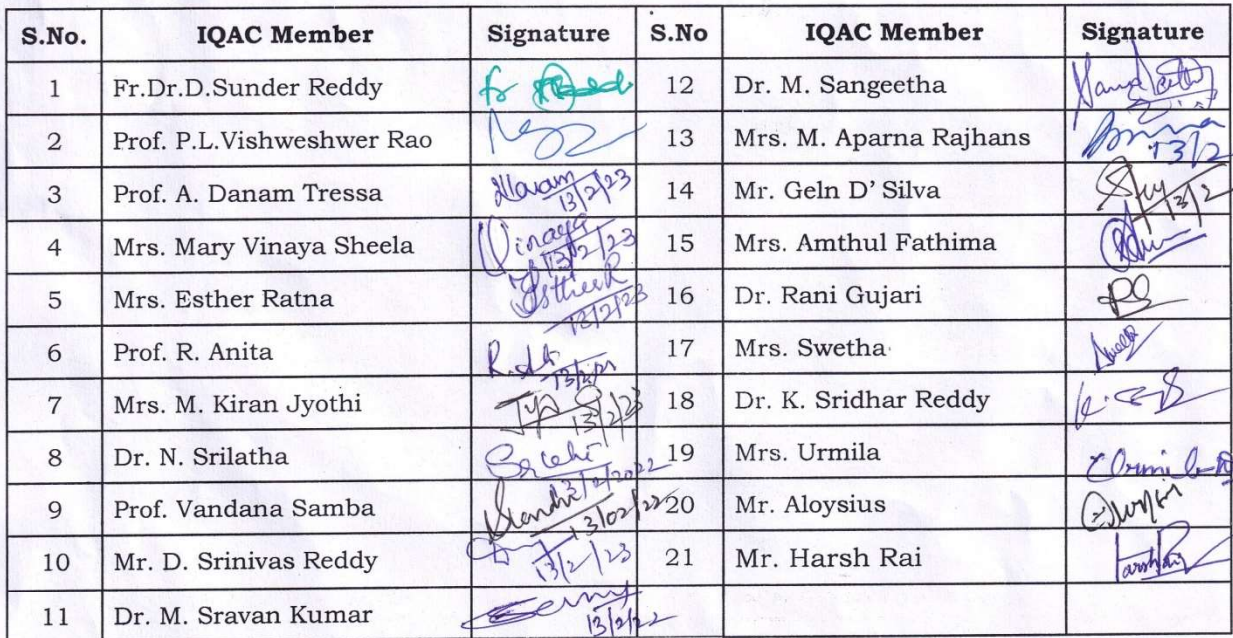 S.No. IQAC Member Signature S.No IQAC Member Signature
1 Fr.Dr.D.Sunder Reddy Fr 12 Dr. M. Sangeetha
2 Prof. P.L.Vishweshwer Rao 13 Mrs. M. Aparna Rajhans 13/2
3 Prof. A. Danam Tressa 13/2/23 14 Mr. Geln D' Silva 13/2
4 Mrs. Mary Vinaya Sheela Vinaya 13/2/23 15 Mrs. Amthul Fathima
5 Mrs. Esther Ratna Esther R 13/2/23 16 Dr. Rani Gujari
6 Prof. R. Anita 17 Mrs. Swetha
7 Mrs. M. Kiran Jyothi 13/2/23 18 Dr. K. Sridhar Reddy
8 Dr. N. Srilatha 13/2/2022 19 Mrs. Urmila
9 Prof. Vandana Samba 13/02/22 20 Mr. Aloysius
10 Mr. D. Srinivas Reddy 13/2/23 21 Mr. Harsh Rai
11 Dr. M. Sravan Kumar 13/2/22